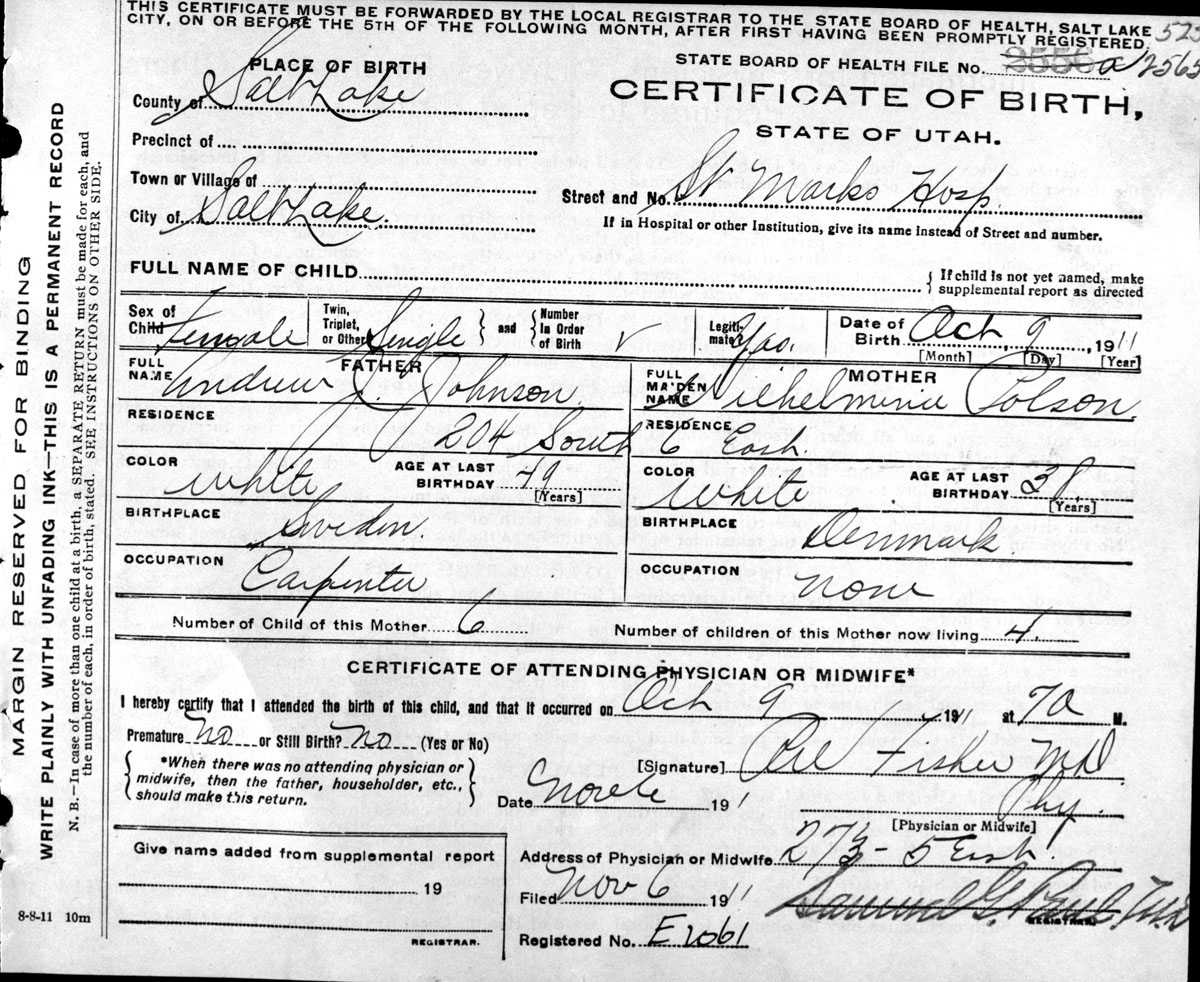 THIS CERTIFICATE MUST BE FORWARDED BY THE LOCAL REGISTRAR TO THE STATE BOARD OF HEALTH, SALT LAKE
CITY, ON OR BEFORE THE 5TH OF THE FOLLOWING MONTH, AFTER FIRST HAVING BEEN PROMPTLY REGISTERED.
STATE BOARD OF HEALTH FILE No. 2556 a 2565
PLACE OF BIRTH
CERTIFICATE OF BIRTH,
STATE OF UTAH.
County of Salt Lake
Precinct of
Town or Village of
Street and No. St Marks Hosp.
City of Salt Lake.
If in Hospital or other Institution, give its name instead of Street and number.
FULL NAME OF CHILD
{ If child is not yet named, make supplemental report as directed
Sex of Child Female Twin, Triplet, or Other Single } and { Number in Order of Birth Legiti-mate? Yes. Date of Birth Oct 9, 1911
[Month] [Day] [Year]
FATHER
MOTHER
FULL NAME Andrew J. Johnson
FULL MAIDEN NAME Wilhelmina Polson.
RESIDENCE 204 South 6 East.
RESIDENCE
COLOR White AGE AT LAST BIRTHDAY 49 [Years]
COLOR White AGE AT LAST BIRTHDAY 38 [Years]
BIRTHPLACE Sweden
BIRTHPLACE Denmark
OCCUPATION Carpenter
OCCUPATION None
Number of Child of this Mother 6
Number of children of this Mother now living 4.
CERTIFICATE OF ATTENDING PHYSICIAN OR MIDWIFE*
I hereby certify that I attended the birth of this child, and that it occurred on Oct 9, 1911 at 7a M.
Premature No or Still Birth? No (Yes or No)
{ *When there was no attending physician or midwife, then the father, householder, etc., should make this return. }
[Signature] Fisher MD
Date 191
Phy.
[Physician or Midwife]
Give name added from supplemental report
Address of Physician or Midwife 273 - 5 East
19
Filed Nov 6 1911
Samuel G. Paul, M.D.
REGISTRAR.
8-8-11 10m
REGISTRAR.
Registered No. E2061
MARGIN RESERVED FOR BINDING
WRITE PLAINLY WITH UNFADING INK—THIS IS A PERMANENT RECORD
N. B.—In case of more than one child at a birth, a SEPARATE RETURN must be made for each, and
the number of each, in order of birth, stated. SEE INSTRUCTIONS ON OTHER SIDE.